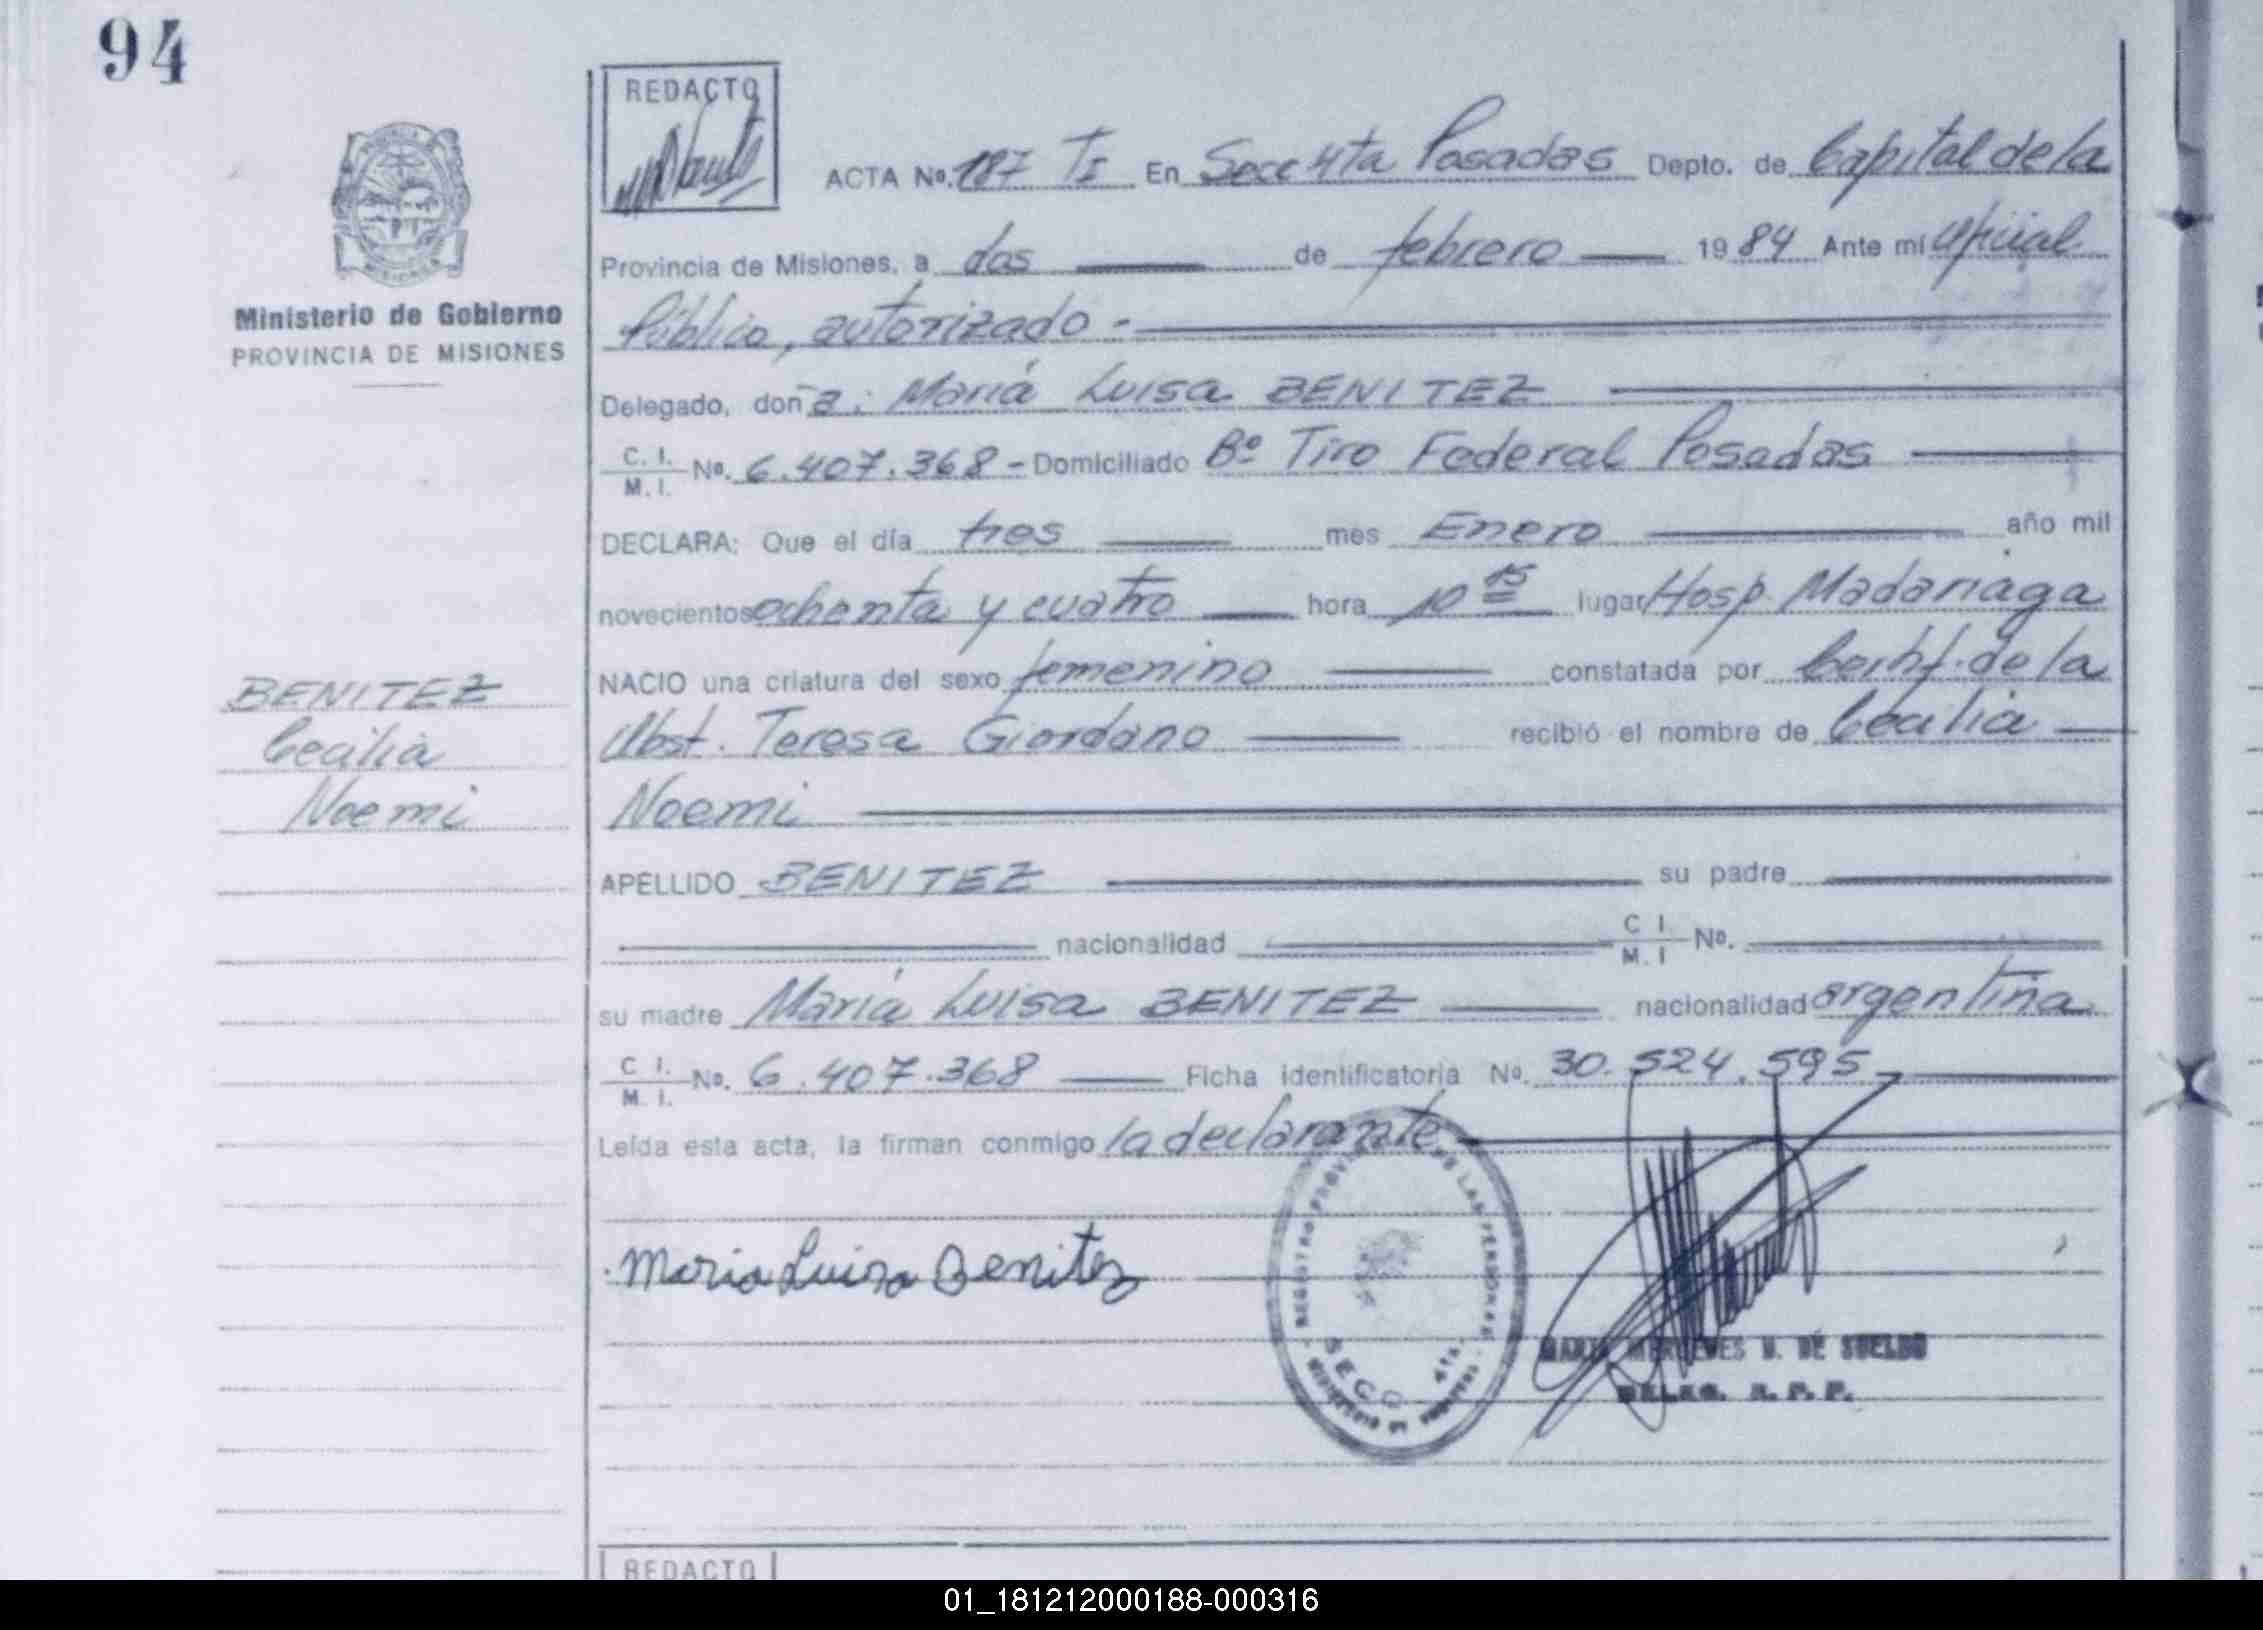 94
REDACTO
ACTA Nº. 187 TI En Secc 4ta Posadas Depto. de Capital de la
Provincia de Misiones, a dos de febrero 1984 Ante mí oficial
Ministerio de Gobierno
PROVINCIA DE MISIONES
Público, autorizado.-
Delegado, doña: María Luisa BENITEZ
C. I.
M. I. Nº. 6.407.368 - Domiciliado Bº Tiro Federal Posadas
DECLARA: Que el día tres mes Enero año mil
novecientos ochenta y cuatro hora 10 15 lugar Hosp. Madariaga
NACIO una criatura del sexo femenino constatada por Certif. de la
BENITEZ
Cecilia
Noemi
Obst. Teresa Giordano recibió el nombre de Cecilia
Noemi
APELLIDO BENITEZ su padre
nacionalidad C I. M. I Nº.
su madre María Luisa BENITEZ nacionalidad argentina
C I.
M. I. Nº. 6.407.368 Ficha identificatoria Nº. 30.524.595
Leída esta acta, la firman conmigo la declarante
Maria Luisa Benitez
REGISTRO DE LAS PERSONAS
SECC 4ta.
MARIA MERCEDES V. DE SUELDO
DELEG. R. P. P.
REDACTO
01_181212000188-000316